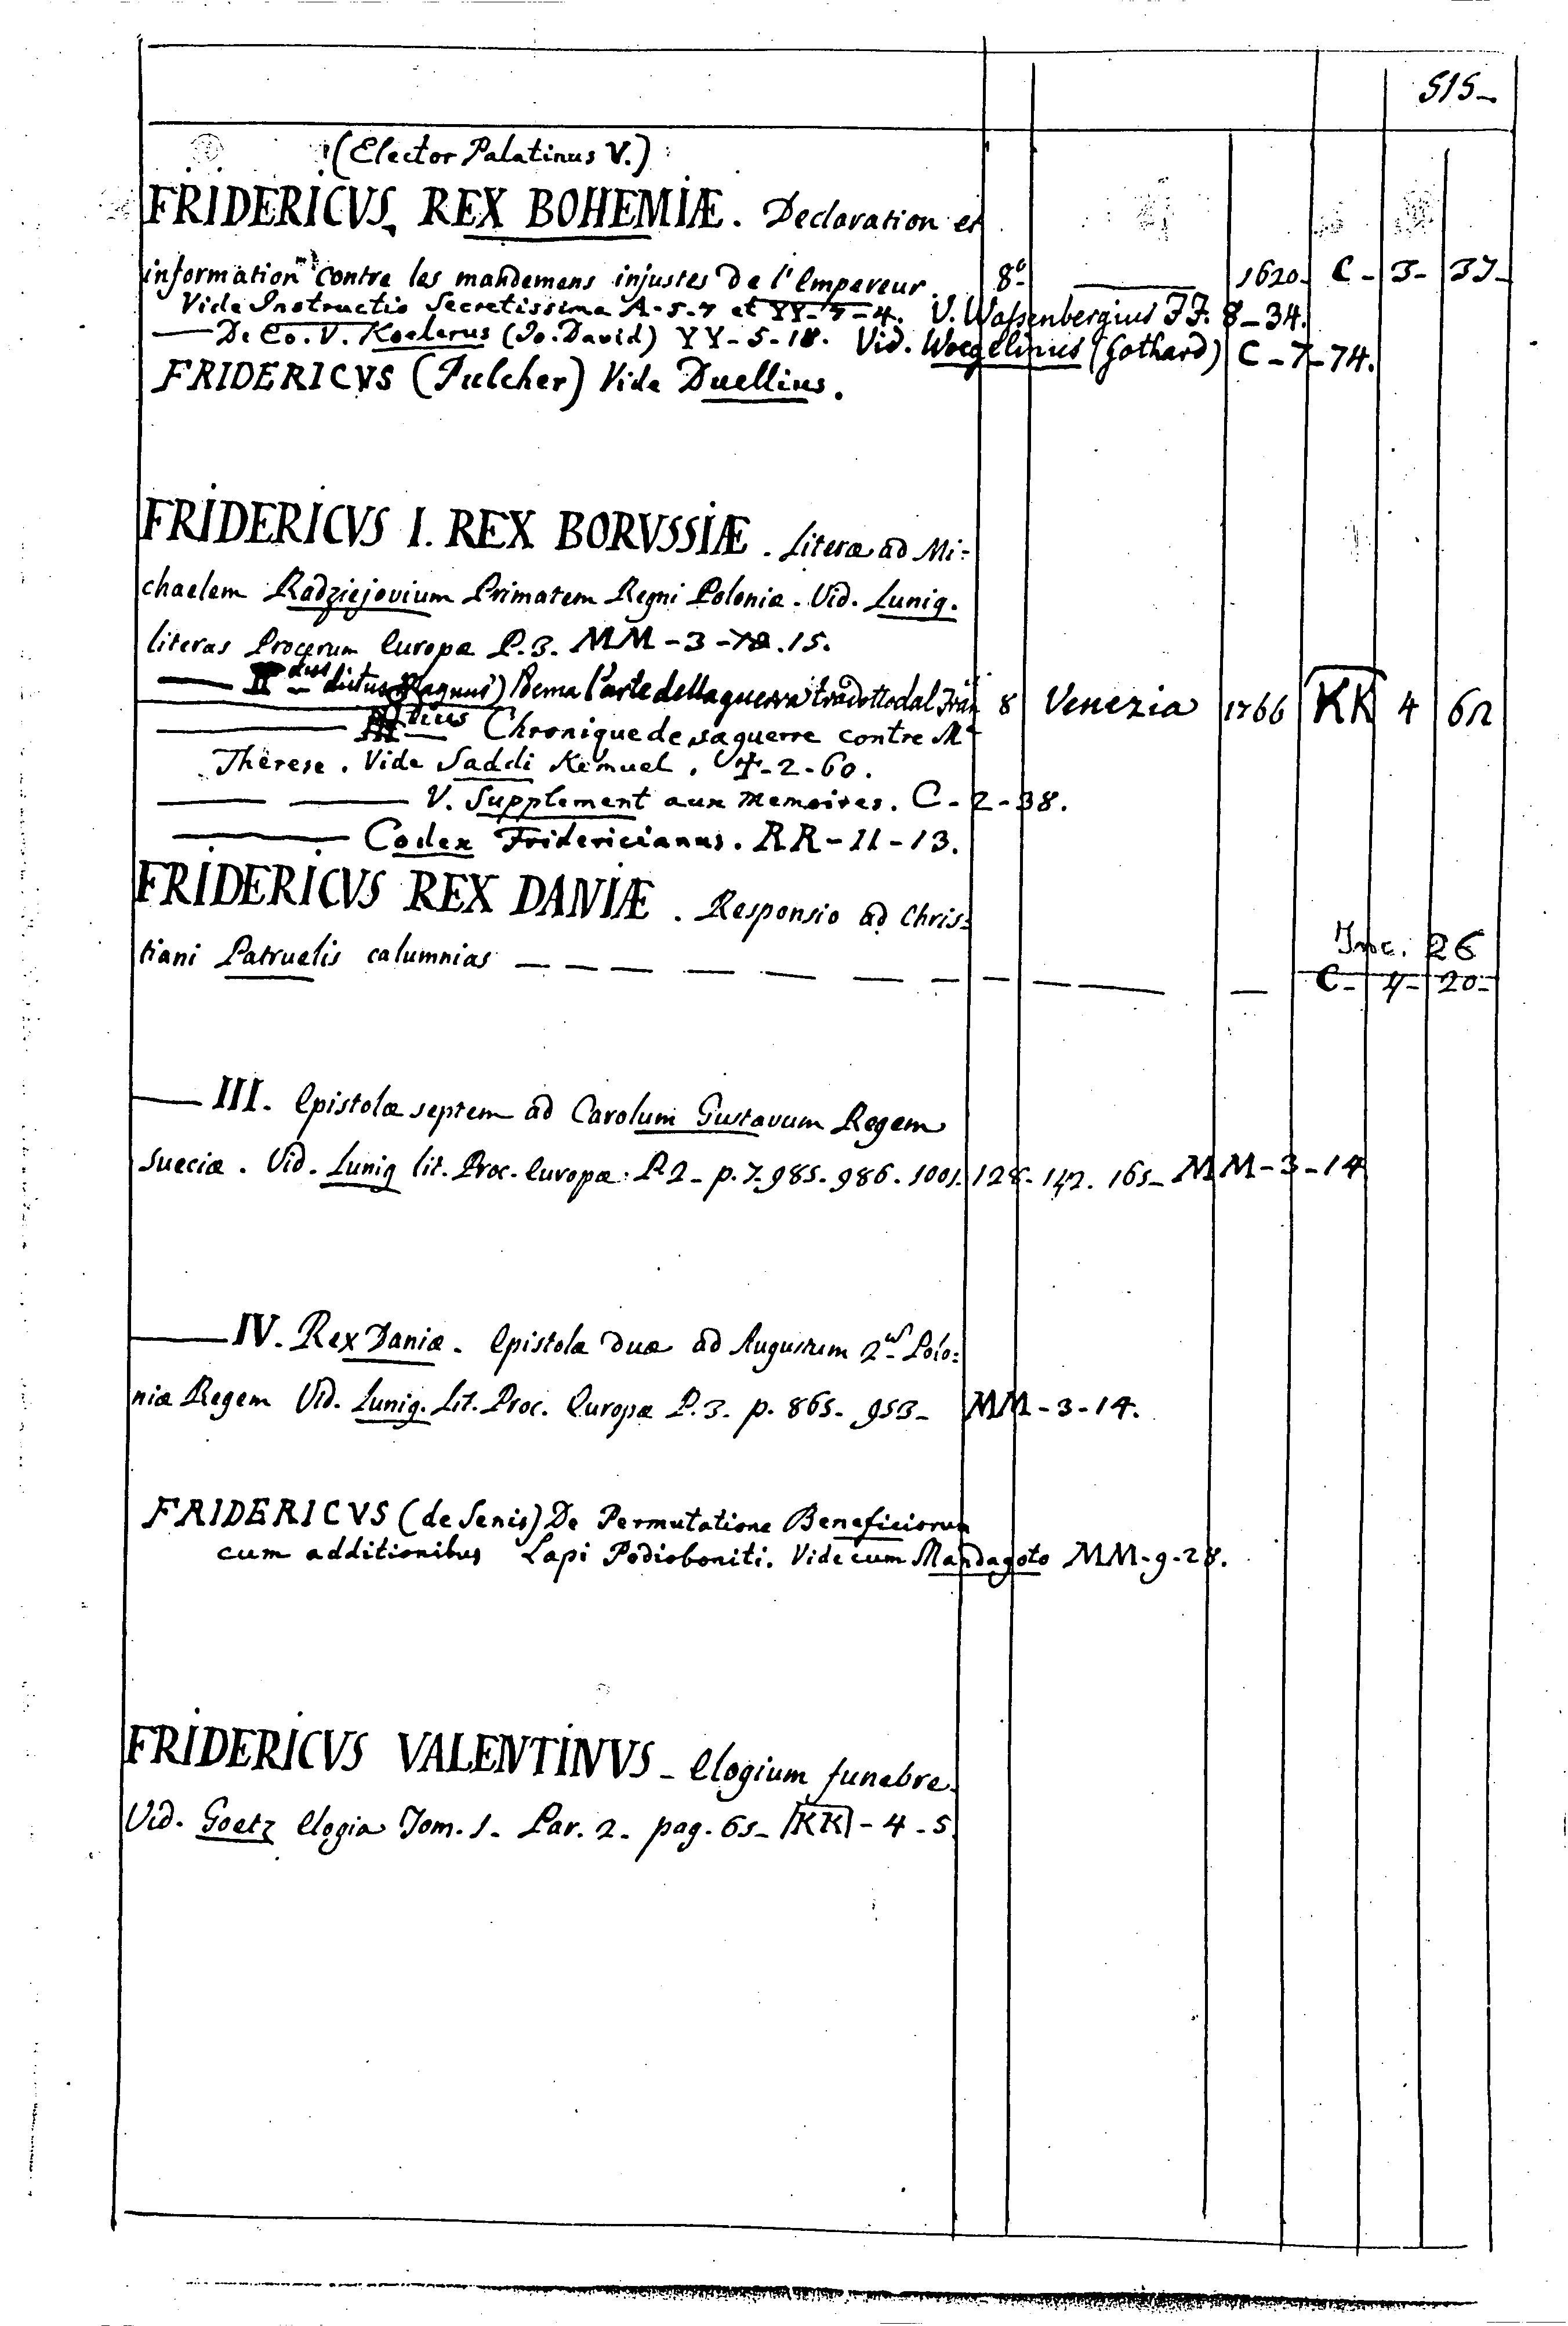 515-
(Elector Palatinus V.)
FRIDERICVS. REX BOHEMIÆ. Declaration et
information contre les mandemens injustes de l'Empereur. 8º ——— 1620- C - 3- 37-
Vide Instructio Secretissima A-5-7 et YY-7-4. V. Wassenbergius FF. 8-34.
—— De Eo. V. Koelerus (Jo. David) YY-5-18. Vid. Woegelinus (Gothard) C-7-74.
FRIDERICVS (Pulcher) Vide Duellius.
FRIDERICVS I. REX BORVSSIÆ. Literæ ad Mi-
chaelem Radziejovium Primatem Regni Poloniæ. Vid. Lunig.
literas Procerum Europæ P.3. MM-3-.15.
—— II dictus Magnus) Poema l'arte della guerra tradotto dal Fran 8 Venezia 1766 KK 4 62
——— Chronique de sa guerre contre M
Thérese. Vide Saddi Kemuel. -2-60.
—— —— V. Supplement aux memoires. C-2-38.
——— Codex Fridericianus. RR-11-13.
FRIDERICVS REX DANIÆ. Responsio ad Chris-
tiani Patruelis calumnias — — — — — — — — Inc. 26
C- 4- 20-
—— III. Epistolæ septem ad Carolum Gustavum Regem
Sueciæ. Vid. Lunig lit. Proc. Europæ: P.2- p.7-985-986.1001.128-142.165- MM-3-14
—— IV. Rex Daniæ. Epistolæ duæ ad Augustum 2 Polo-
niæ Regem Vid. Lunig. Lit. Proc. Europæ P.3- p. 865- 953- MM-3-14.
FRIDERICVS (de Senis) De Permutatione Beneficiorum
cum additionibus Lapi Podioboniti. Vide cum Mandagoto MM-9-28.
FRIDERICVS VALENTINVS - Elogium funebre.
Vid. Goetz Elogia Tom. 1- Par. 2- pag. 65- KK - 4 - 5